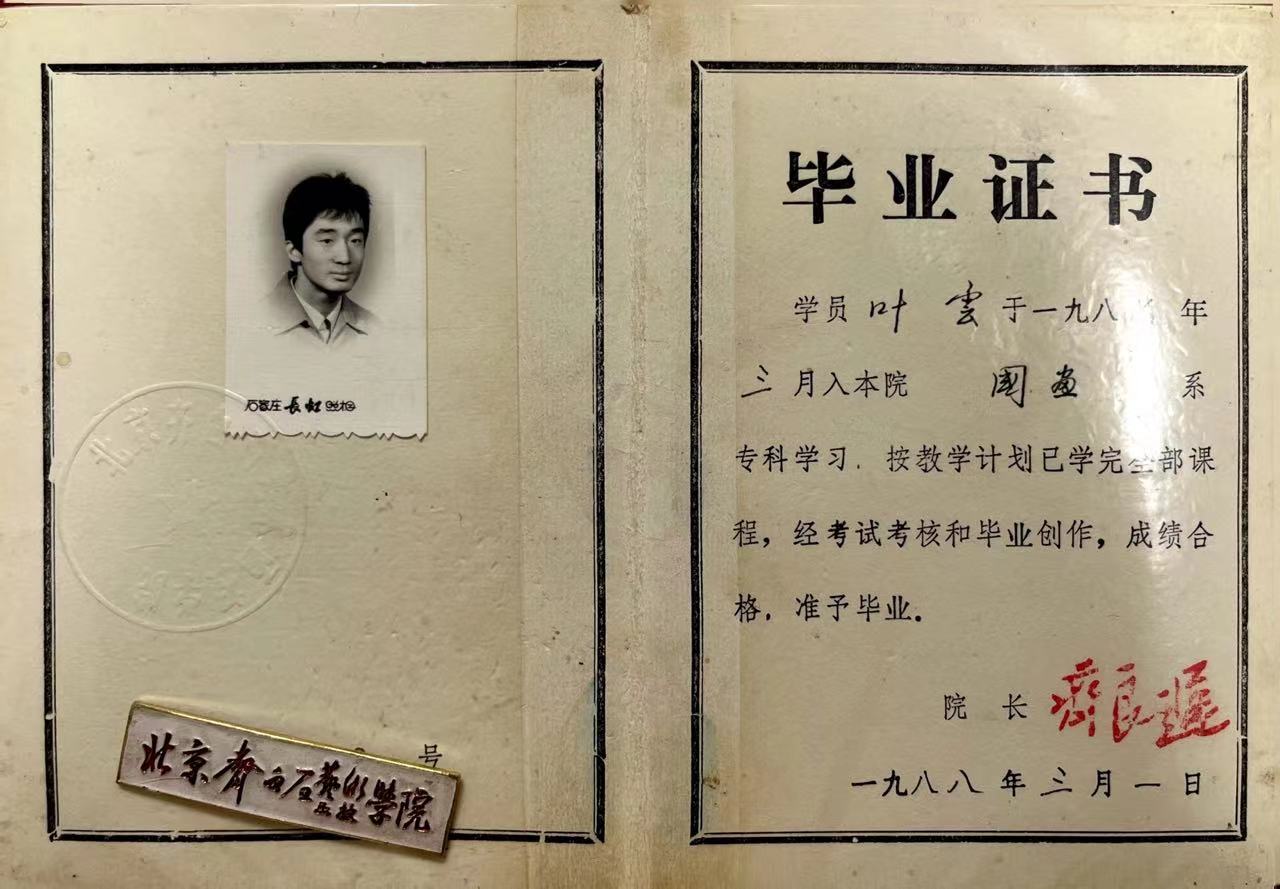 石家庄長虹照相
北京
号
北京齊白石藝術
函授學院
毕业证书
学员叶雲于一九八 年
三月入本院 國畫 系
专科学习．按教学计划已学完全部课
程，经考试考核和毕业创作，成绩合
格．准予毕业．
院 长 齊良遲
一九八八年三月一日